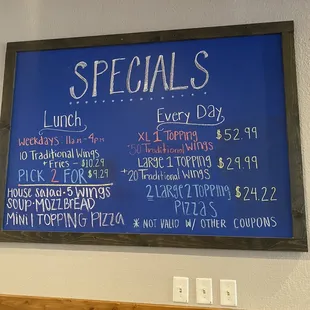 SPECIALS
Lunch
WEEKDAYS 11am - 4pm
10 Traditional Wings
+ Fries - $10.29
PICK 2 FOR $9.29
HOUSE SALAD • 5 WINGS
SOUP • MOZZ BREAD
MINI 1 TOPPING PIZZA
Every Day
XL 1 TOPPING $52.99
50 Traditional Wings
LARGE 1 TOPPING $29.99
+ 20 Traditional Wings
2 LARGE 2 TOPPING $24.22
PIZZAS
* NOT VALID W/ OTHER COUPONS